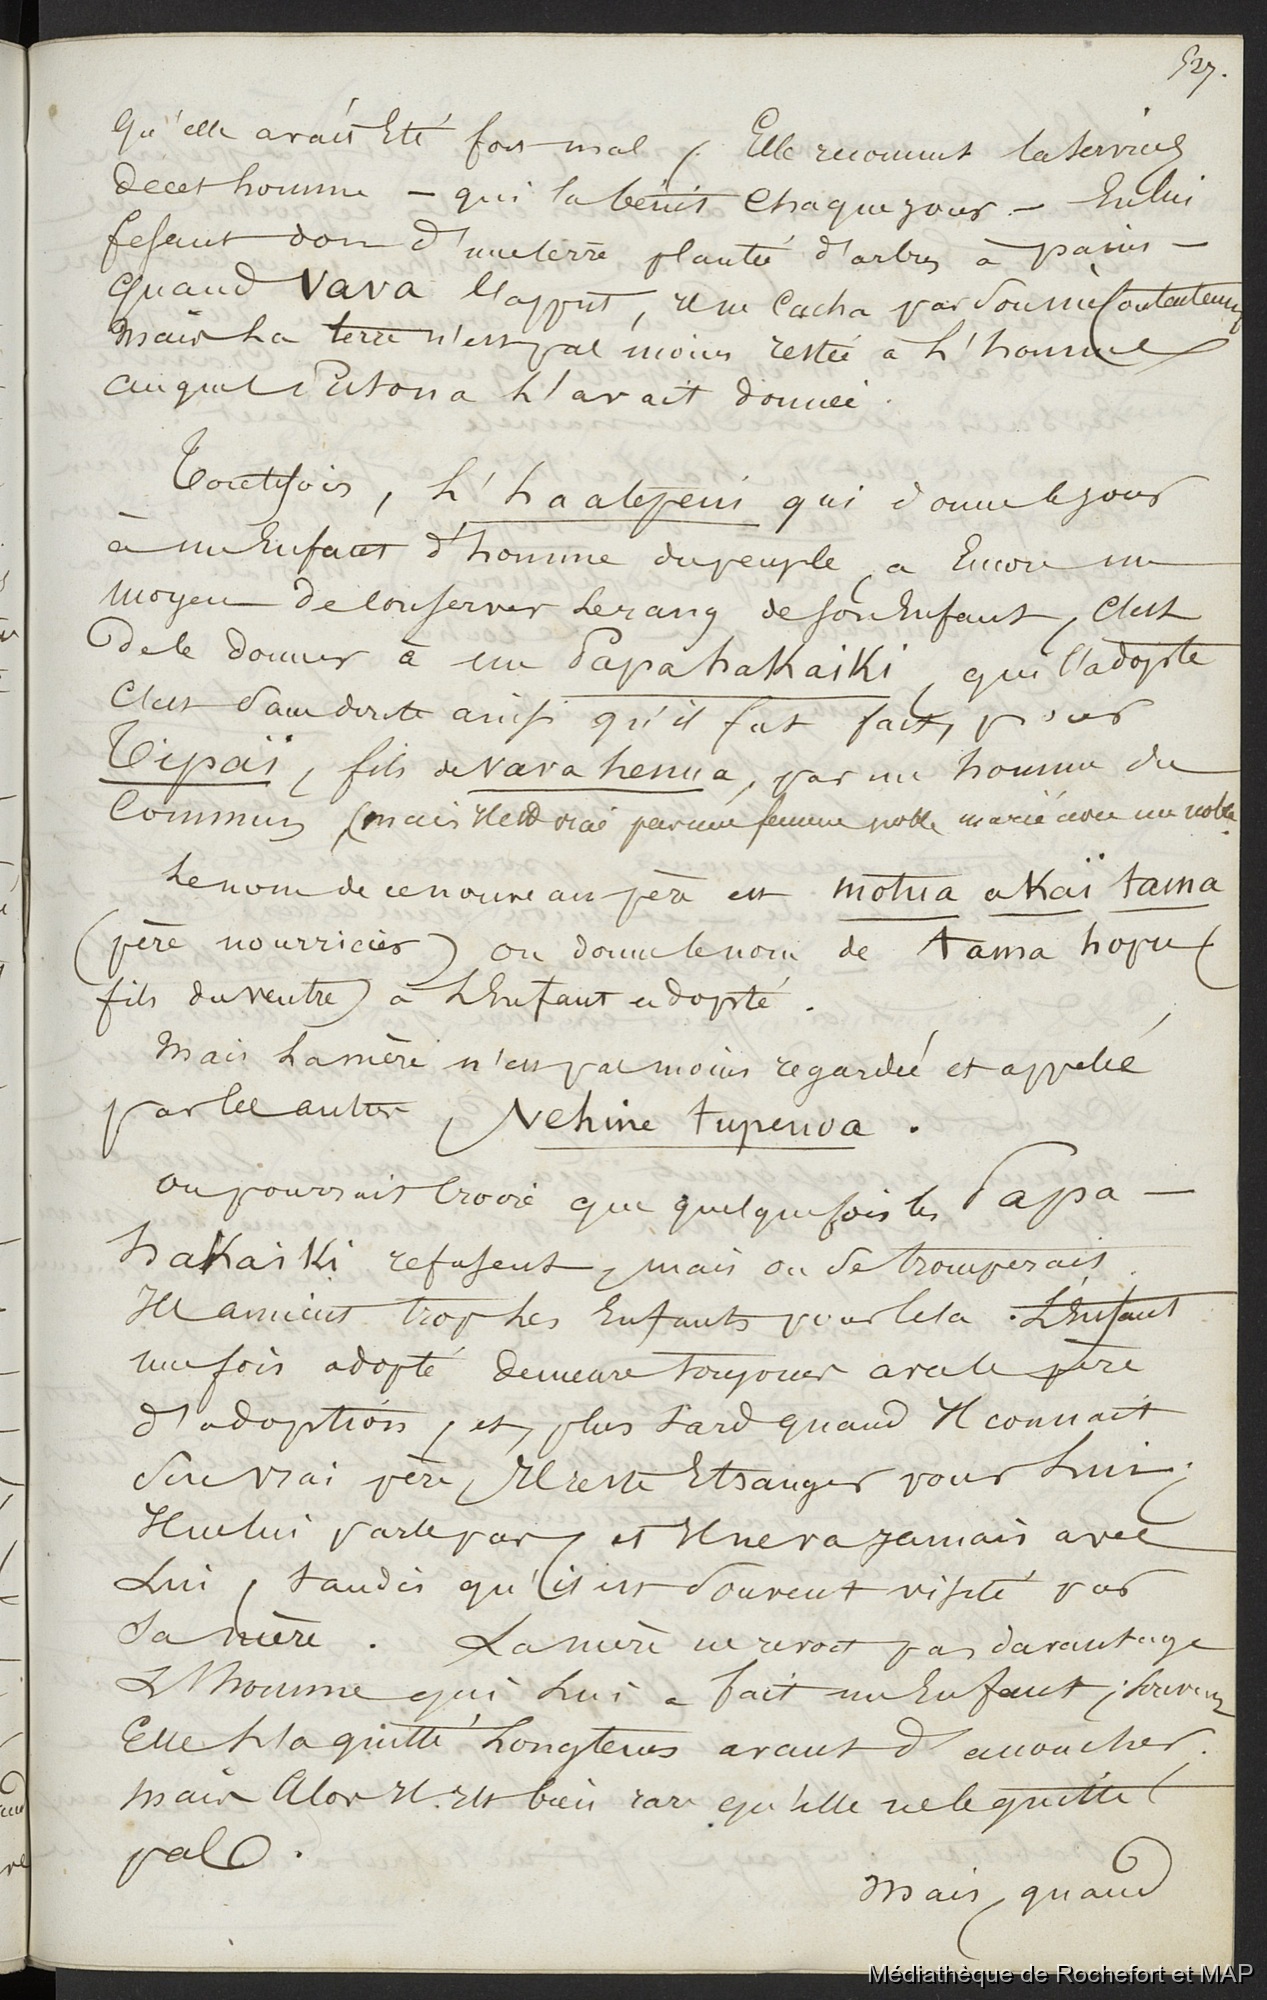 527.
Qu'elle avait Eté fort mal, Elle reconnut les services
De cet homme — qui la bénit chaque jour — En lui
fesant don d'une terre plantée d'arbres à pains —
Quand Vava l'apprit, il ne cacha pas son mécontentement
mais La terre n'est pas moins restée à L'homme
auquel Patona L'avait donnée.
Toutefois, L'haatepeiu qui donne le jour
à un Enfant d'homme du peuple, a Encore un
moyen De conserver Le rang de son Enfant, C'est
De le donner à un Papa hakaiki, qui l'adopte
C'est sans doute ainsi qu'il fut fait, pour
Tipaï, fils de Vava henua, par un homme du
Commun, (mais Il est vrai par une femme noble mariée avec un noble.
Le nom de ce nouveau père est motua akaï tama
(père nourricier) on donne le nom de tama hopu (
fils du ventre) à L'Enfant adopté.
Mais La mère n'est pas moins regardée et appelée
par les autres, Vehine tupenoa.
On pourrait croire que quelquefois les Papa —
hakaiki refusent, mais on se tromperait.
Ils aiment trop Les Enfants pour Cela. L'Enfant
une fois adopté Demeure toujours avec le père
d'adoption, et, plus tard quand Il connait
son vrai père, Il reste Etranger pour Lui;
Il ne lui parle pas, et Il ne va jamais avec
Lui, tandis qu'il est souvent visité par
Sa mère. La mère ne revoit pas davantage
L'homme qui Lui a fait un Enfant; souvent
Elle L'a quitté Longtems avant d'accoucher.
Mais Alors Il Est bien rare qu'elle ne le quitte
pas.
Mais, quand
Médiathèque de Rochefort et MAP